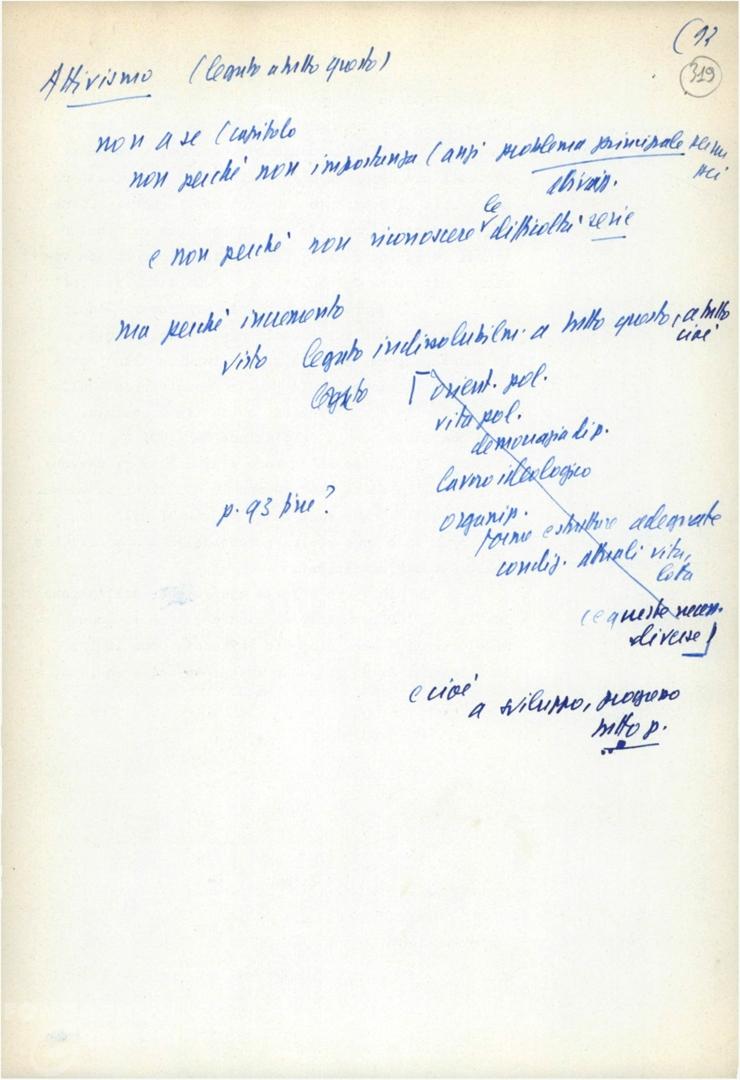 (12
319
Attivismo (legato a tutto questo)
non a se (capitolo
non perché non importanza (anzi problema principale
attivizz.
e non perché non riconoscere le difficoltà serie
ma perché incremento
visto legato indissolubilm. a tutto questo, a tutto
cioè
legato [orient. pol.
vita pol.
democrazia di p.
lavoro ideologico
p. 93 fine?
organizz.
forme e strutture adeguate
condiz. attuali vita,
lotta
(e queste necess.
diverse)]
e cioè
a sviluppo, progresso
tutto p.